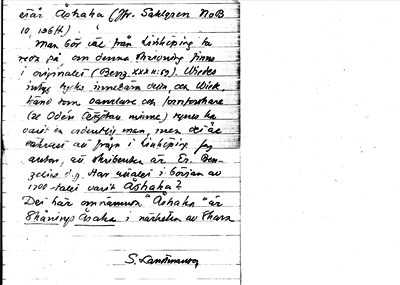 är Åshaka (Jfr. Sahlgren NoB
10, 136 ff.)
Man bör väl från Linköping ta
reda på om denna skrivning finns
i originalet (Benz XXX II:59). Wiedes
intyg tycks innebära detta, och Wiede,
känd som samlare och fornforskare
(se Odén Östgötars minne) synes ha
varit en ordentlig man, men det är
av från i Linköping få
avhöra, att skribenten är Er. Ben-
zelius d.y. Har uttalet i början av
1700-talet varit Åshaka?
Det här omnämnda "Åshaka" är
Skånings Åsaka i närheten av Skara
S. Landtmanson